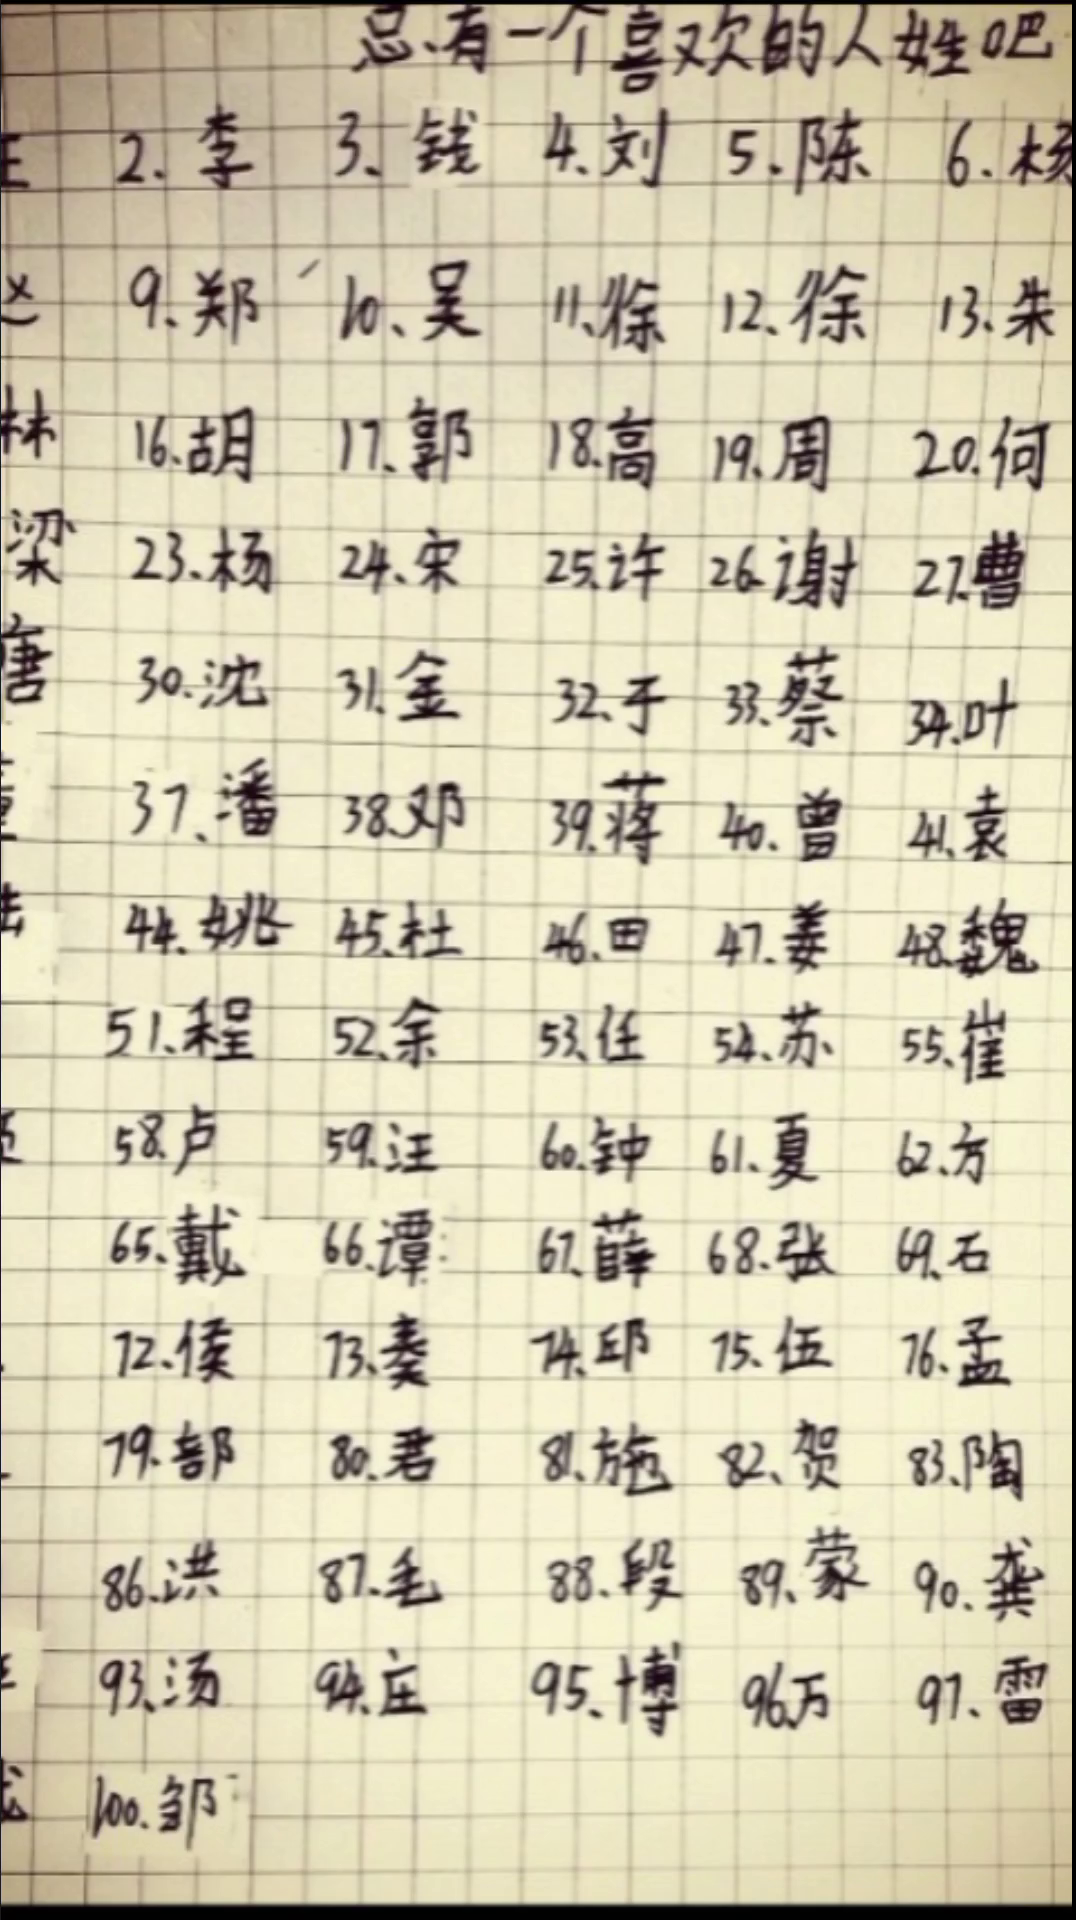 总有一个喜欢的人姓吧
2. 李 3. 钱 4. 刘 5. 陈 6. 杨
9. 郑 10. 吴 11. 徐 12. 徐 13. 朱
林 16. 胡 17. 郭 18. 高 19. 周 20. 何
梁 23. 杨 24. 宋 25. 许 26. 谢 27. 曹
唐 30. 沈 31. 金 32. 于 33. 蔡 34. 叶
37. 潘 38. 邓 39. 蒋 40. 曾 41. 袁
44. 姚 45. 杜 46. 田 47. 姜 48. 魏
51. 程 52. 余 53. 任 54. 苏 55. 崔
58. 卢 59. 汪 60. 钟 61. 夏 62. 方
65. 戴 66. 谭 67. 薛 68. 张 69. 石
72. 侯 73. 秦 74. 邱 75. 伍 76. 孟
79. 部 80. 君 81. 施 82. 贺 83. 陶
86. 洪 87. 毛 88. 段 89. 蒙 90. 龚
93. 汤 94. 庄 95. 博 96. 万 97. 雷
100. 邹